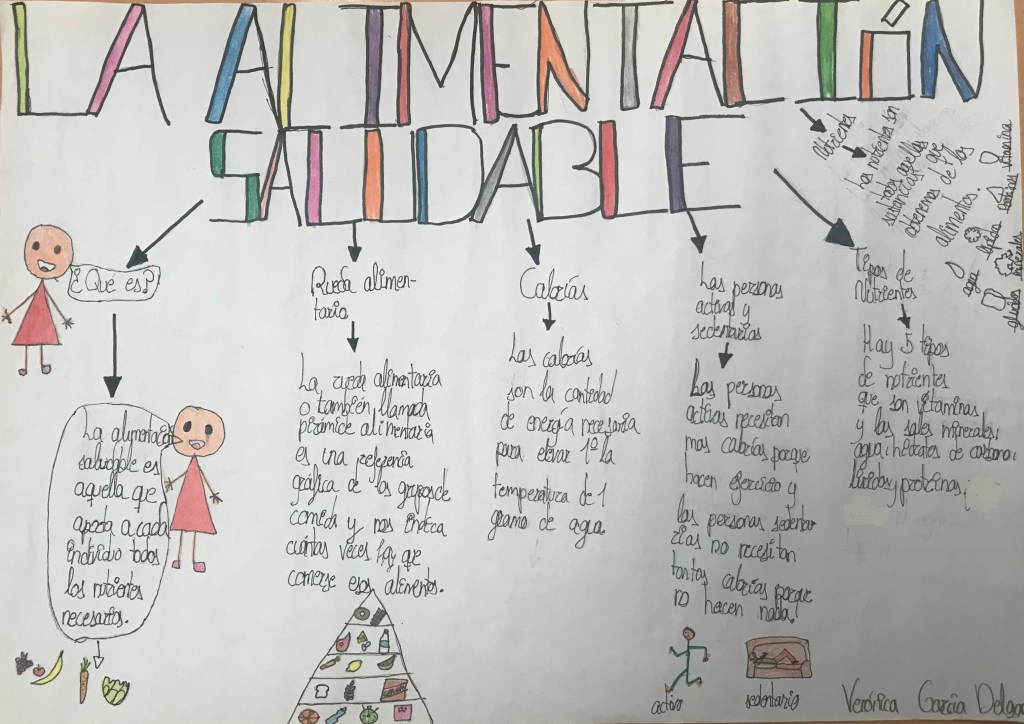 LA ALIMENTACIÓN
SALUDABLE
¿Qué es?
La alimentación
saludable es
aquella que
aporta a cada
individuo todos
los nutrientes
necesarios.
Rueda alimen-
taria
La rueda alimentaria
o también llamada
pirámide alimentaria
es una referenia
gráfica de los grupos de
comida y nos indica
cuántas veces hay que
comerse esos alimentos.
Calorías
Las calorías
son la cantidad
de energía necesaria
para elevar 1º la
temperatura de 1
gramo de agua.
Las personas
activas y
sedentarias
Las personas
activas necesitan
mas calorías porque
hacen ejercicio y
las personas sedenta-
rias no necesitan
tantas calorías porque
no hacen nada.
activo
sedentario
Nutrientes
Los nutrientes son
todas aquellas
sustancias que
obtenemos de los
alimentos.
agua
lípidos
vitaminas
proteína
glúcidos
minerales
Tipos de
Nutrientes
Hay 5 tipos
de nutrientes
que son vitaminas
y las sales minerales,
agua, hidratos de carbono,
lípidos y proteínas.
Verónica García